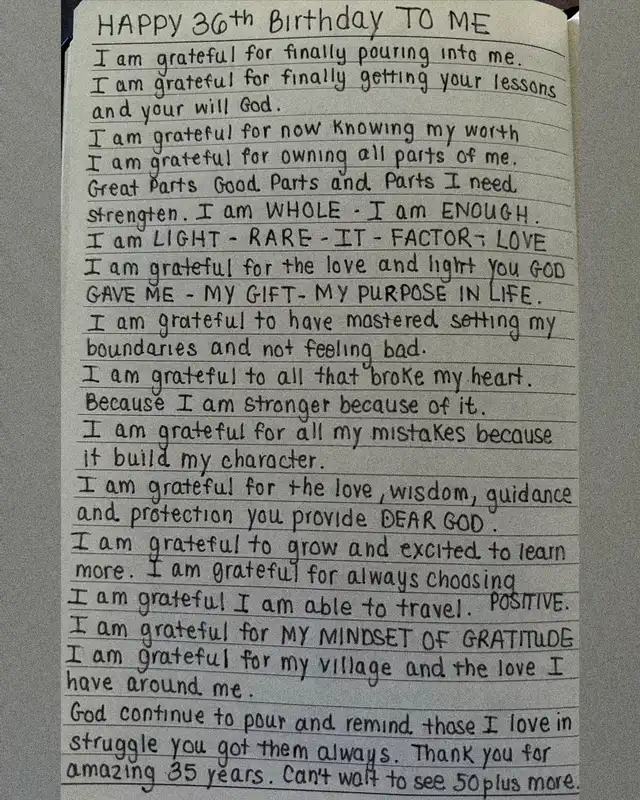 HAPPY 36th Birthday TO ME
I am grateful for finally pouring into me.
I am grateful for finally getting your lessons
and your will God.
I am grateful for now knowing my worth
I am grateful for owning all parts of me.
Great Parts Good Parts and Parts I need
strengten. I am WHOLE - I am ENOUGH.
I am LIGHT - RARE - IT - FACTOR - LOVE
I am grateful for the love and light you GOD
GAVE ME - MY GIFT - MY PURPOSE IN LIFE.
I am grateful to have mastered setting my
boundaries and not feeling bad.
I am grateful to all that broke my heart.
Because I am stronger because of it.
I am grateful for all my mistakes because
it build my character.
I am grateful for the love, wisdom, guidance
and protection you provide DEAR GOD.
I am grateful to grow and excited to learn
more. I am grateful for always choosing
POSITIVE.
I am grateful I am able to travel.
I am grateful for MY MINDSET OF GRATITUDE
I am grateful for my village and the love I
have around me.
God continue to pour and remind those I love in
struggle you got them always. Thank you for
amazing 35 years. Can't wait to see 50 plus more.